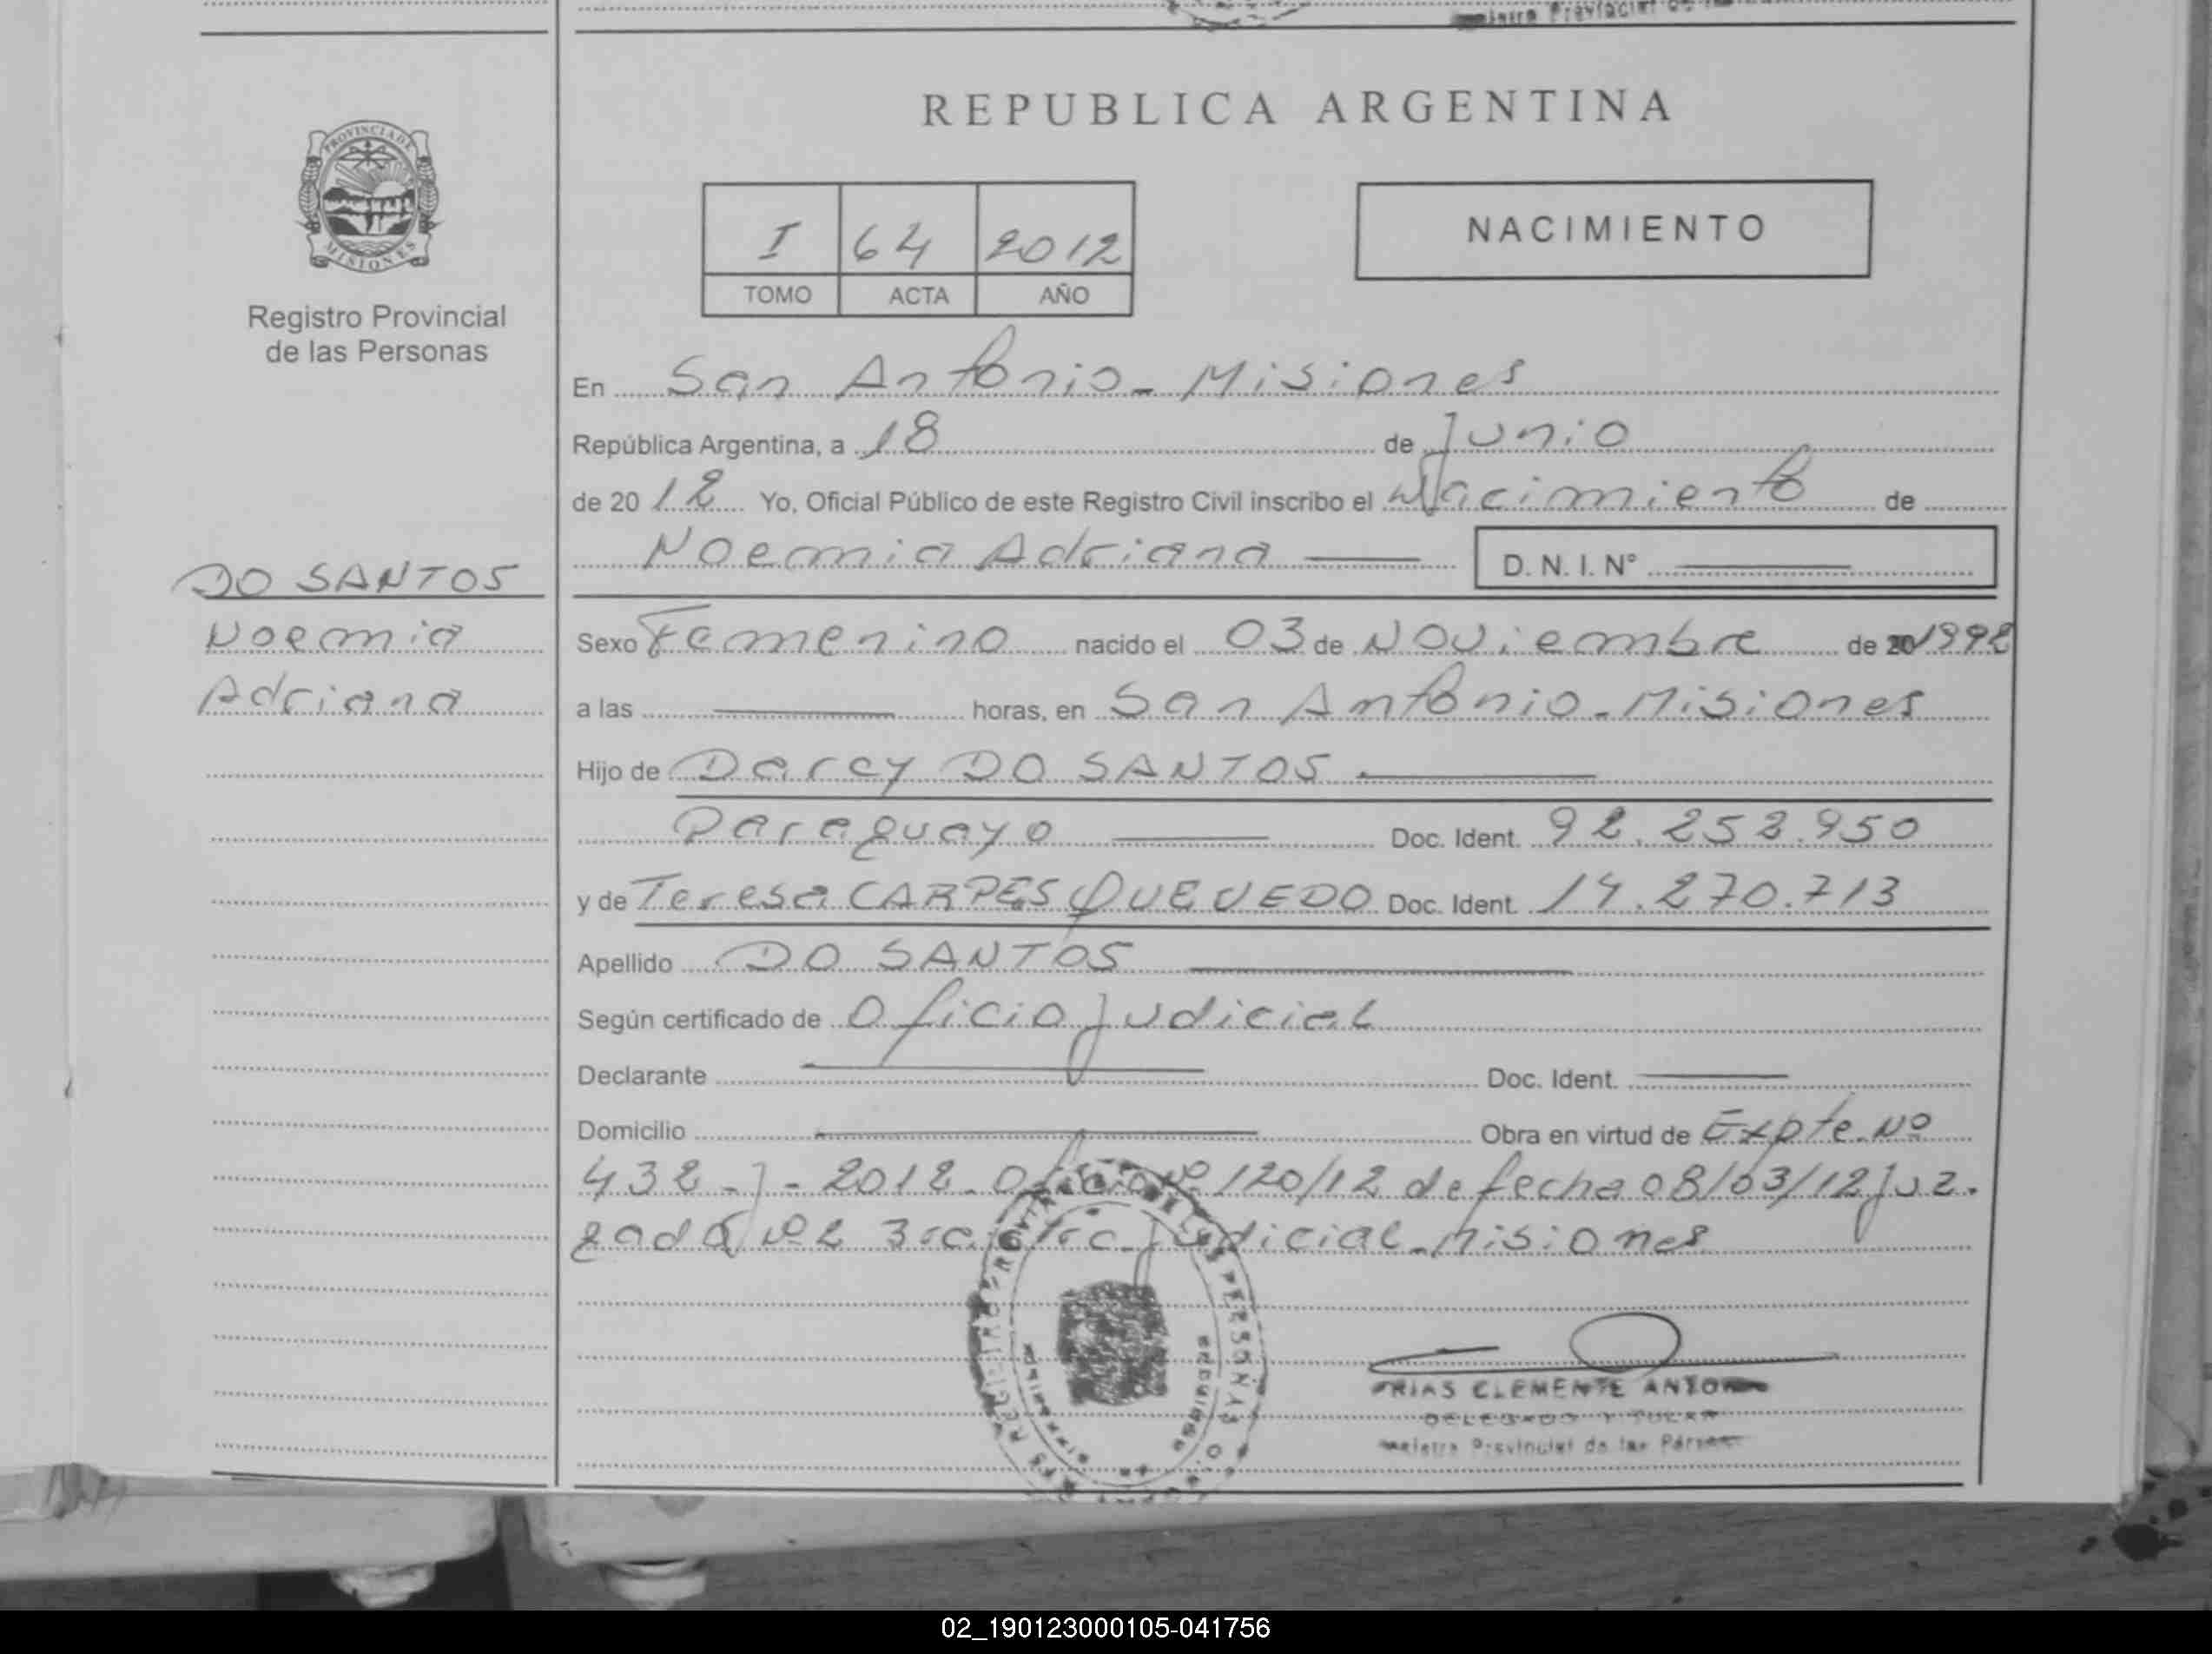 REPUBLICA ARGENTINA
PROVINCIA DE
MISIONES
Registro Provincial
de las Personas
I 64 2012
TOMO ACTA AÑO
NACIMIENTO
En San Antonio - Misiones
República Argentina, a 18 de Junio
de 2012 Yo, Oficial Público de este Registro Civil inscribo el Nacimiento de
Noemia Adriana D. N. I. Nº
DO SANTOS
Noemia
Adriana
Sexo Femenino nacido el 03 de Noviembre de 1992
a las horas, en San Antonio - Misiones
Hijo de Darcy DO SANTOS
Paraguayo Doc. Ident. 92.252.950
y de Teresa CARPES QUEVEDO Doc. Ident. 14.270.713
Apellido DO SANTOS
Según certificado de Oficio Judicial
Declarante Doc. Ident.
Domicilio Obra en virtud de Expte. Nº
432 - J - 2012 - Oficio Nº 120/12 de fecha 08/03/12 Juz.
gado Nº 2 3ra. Circ. Judicial - Misiones
FRIAS CLEMENTE
Provincial de las
02_190123000105-041756